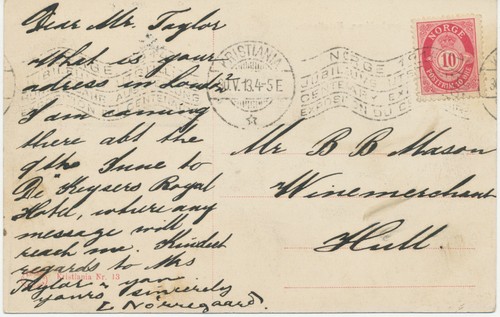 Dear Mr. Taylor
what is your
adress in London?
I am coming
there abt the
9th June to
De Keysers Royal
Hotel, where any
message will
reach me. Kindest
regards to Mrs
Taylor & you
yours sincerely
E Nørregaard.
Kristiania Nr. 13
KRISTIANIA
0.V.13.4-5 E
NORGE
NORGE
10
Mr B B Mason
Winemerchant
Hull.